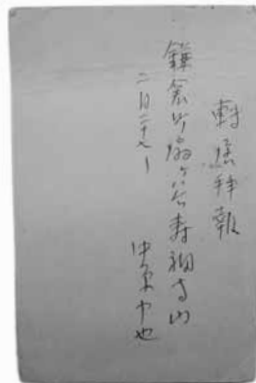 転居拝報
鎌倉町扇ヶ谷寿福寺内
二月二十七日
中原中也